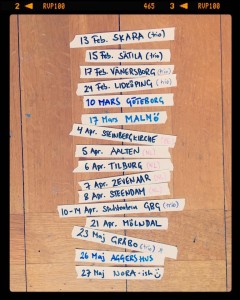 2 RVP100 465 3 RVP100
13 Feb. SKARA (trio)
15 Feb. SÄTILA (trio)
17 Feb. VÄNERSBORG (trio)
24 Feb. LIDKÖPING (trio)
10 MARS GÖTEBORG
17 Mars MALMÖ
4 Apr. STEINBERGKIRCHE
5 Apr. AALTEN (NL)
6 Apr. TILBURG (NL)
7 Apr. ZEVENAAR (NL)
8 Apr. STEENDAM (NL)
10-11 Apr. GBG (trio)
21 Apr. MÖLNDAL
23 Maj GRÅBO (trio)
26 Maj AGGERSHUS
27 Maj NORA-ish